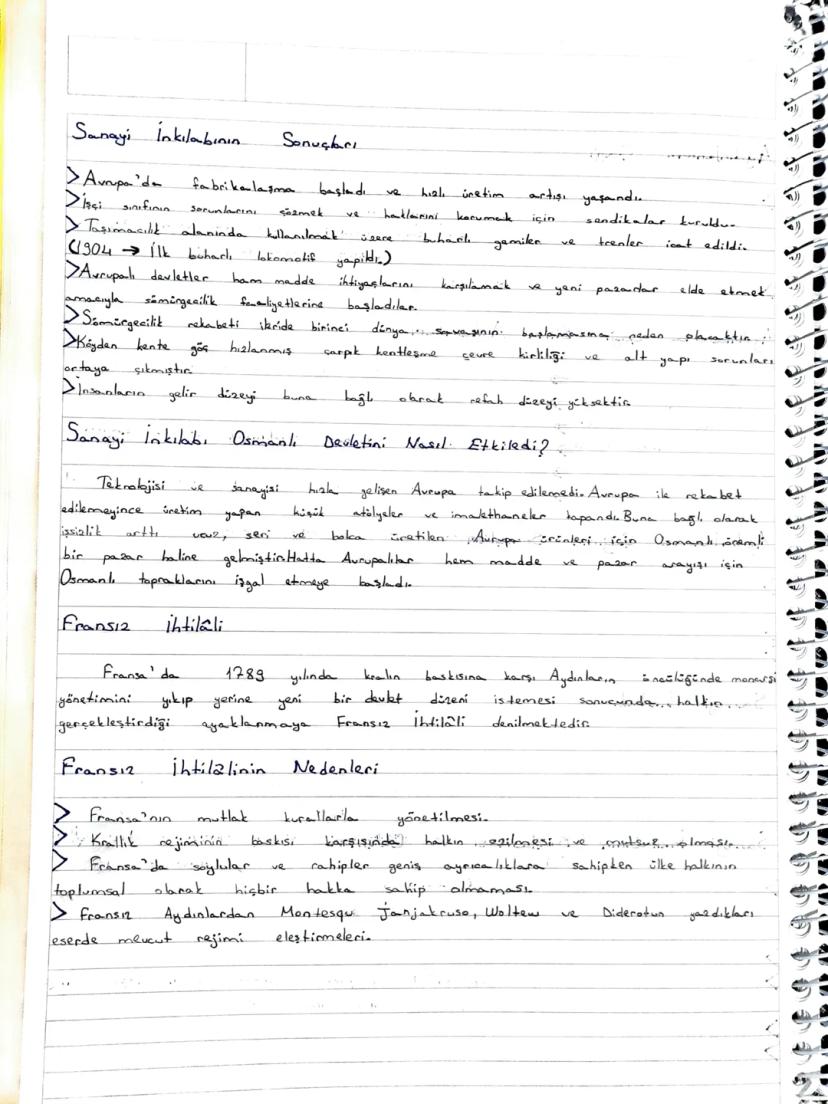 Sanayi İnkılabının Sonuçları
> Avrupa'da fabrikalaşma başladı ve hızlı üretim artışı yaşandı.
> İşçi sınıfının sorunlarını çözmek ve haklarını korumak için sendikalar kuruldu.
> Taşımacılık alanında kullanılmak üzere buharlı gemiler ve trenler icat edildi.
(1904 → İlk buharlı lokomotif yapıldı.)
> Avrupalı devletler ham madde ihtiyaçlarını karşılamak ve yeni pazarlar elde etmek
amacıyla sömürgecilik faaliyetlerine başladılar.
> Sömürgecilik rekabeti ileride birinci dünya savaşının başlamasına neden olacaktır.
> Köyden kente göç hızlanmış çarpık kentleşme çevre kirliliği ve alt yapı sorunları
ortaya çıkmıştır.
> İnsanların gelir düzeyi buna bağlı olarak refah düzeyi yüksektir.
Sanayi İnkılabı Osmanlı Devletini Nasıl Etkiledi?
Teknolojisi ve sanayisi hızla gelişen Avrupa takip edilemedi. Avrupa ile rekabet
edilemeyince üretim yapan küçük atölyeler ve imalethaneler kapandı. Buna bağlı olarak
işsizlik arttı ucuz, seri ve bolca üretilen Avrupa ürünleri için Osmanlı önemli
bir pazar haline gelmiştir. Hatta Avrupalılar hem madde ve pazar arayışı için
Osmanlı topraklarını işgal etmeye başladı.
Fransız İhtilâli
Fransa'da 1789 yılında kralın baskısına karşı Aydınların öncülüğünde monarşi
yönetimini yıkıp yerine yeni bir devlet düzeni istemesi sonucunda halkın
gerçekleştirdiği ayaklanmaya Fransız İhtilâli denilmektedir.
Fransız İhtilâlinin Nedenleri
> Fransa'nın mutlak kurallarla yönetilmesi.
> Krallık rejiminin baskısı karşısında halkın ezilmesi ve mutsuz olması.
> Fransa'da soylular ve rahipler geniş ayrıcalıklara sahipken ülke halkının
toplumsal olarak hiçbir hakka sahip olmaması.
> Fransız Aydınlardan Montesqu Janjakruso, Woltew ve Diderotun yazdıkları
eserde mevcut rejimi eleştirmeleri.